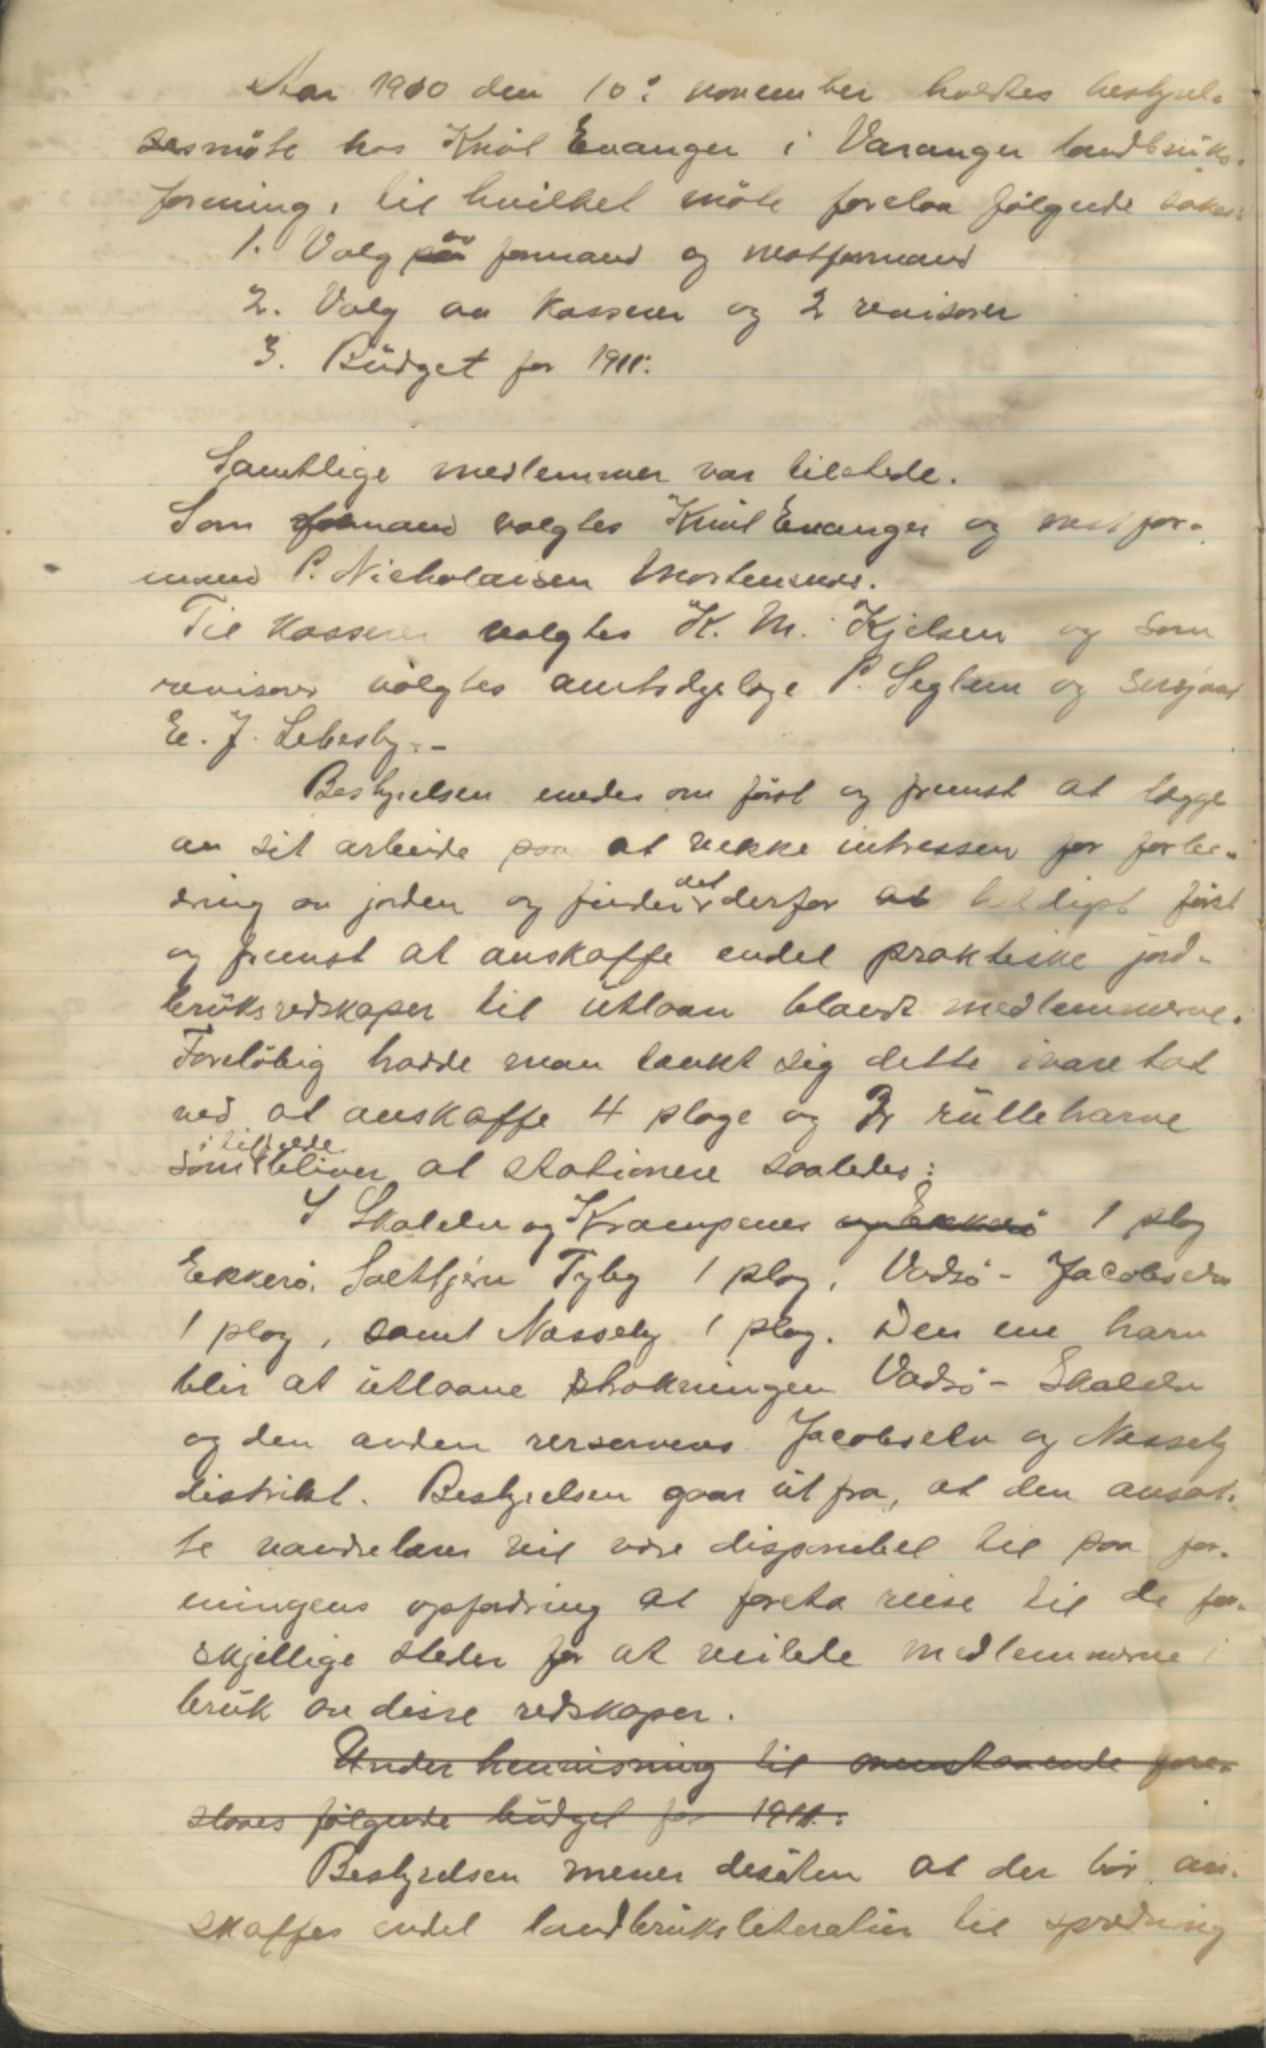 Aar 1910 den 10: november holdtes bestyrel-
sesmöte hos Knut Evanger i Varanger landbruks-
forening, til hvilket möte forelaa fölgende saker:
1. Valg av formand og nestformand
2. Valg av kasserer og 2 revisorer
3. Budget for 1911.
Samtlige medlemmer var tilstede.
Som formand valgtes Knut Evanger og nestfor-
mand P. Nicholaisen Mortensnes.
Til kasserer valgtes K. M. Kjelsen og som
revisorer valgtes amtsdyrlæge P. Seglem og
E. J. Lebesby.-
Bestyrelsen enedes om först og fremst at lægge
an sit arbeide paa at vekke intressen for forbe-
dring av jorden og finder det derfor heldigst först
og fremst at anskaffe endel praktiske jord-
bruksredskaper til utlaan blandt medlemmerne.
Forelöbig hadde man tænkt sig dette ivaretat
ved at anskaffe 4 ploge og 2 rulleharve
som i tilfælde bliver at stationere saaledes:
I Skalelv og Krampenes og Ekkerö 1 plog
Ekkerö, Saltjern Tyby 1 plog, Vadsö - Jacobselv
1 plog, samt Nesseby 1 plog. Den ene harv
blir at utlaane strökningen Vadsö - Skalelv
og den anden reserveres Jacobselv og Nesseby
distrikt. Bestyrelsen gaar ut fra, at den ansat-
te vandrelærer vil være disponibel til paa for-
eningens opfordring at foreta reise til de for-
skjellige steder for at veilede medlemmerne i
bruk av disse redskaper.
Under henvisning til ovenstaaende fore-
slaaes fölgende budget for 1911.:
Bestyrelsen mener desuten at der bör an-
skaffes endel landbruksliteratur til spredning